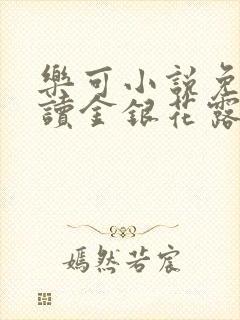 樂可小説免
讀金銀花露
嫣然若宸